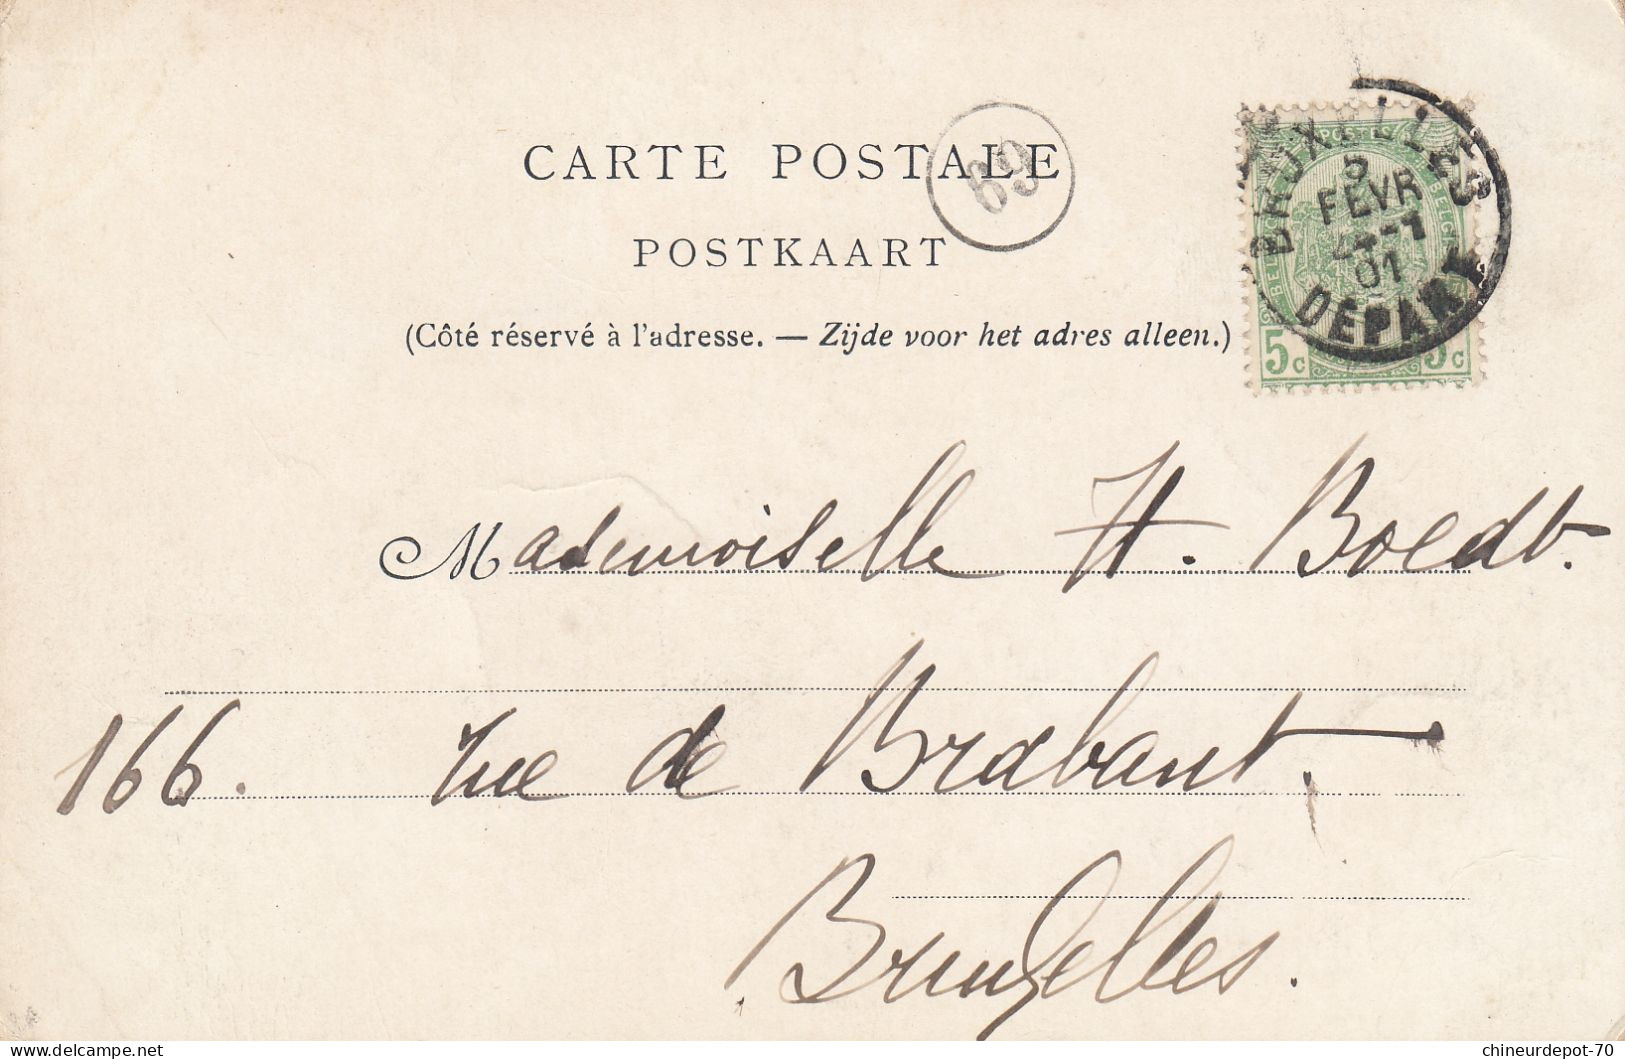 CARTE POSTALE
69
POSTKAART
(Côté réservé à l'adresse. — Zijde voor het adres alleen.)
BRUXELLES
5
FEVR
24-1
01
DEPART
POSTES
5c 5c
Mademoiselle H. Boedt.
166. rue de Brabant.
Bruxelles.
delcampe.net
chineurdepot-70